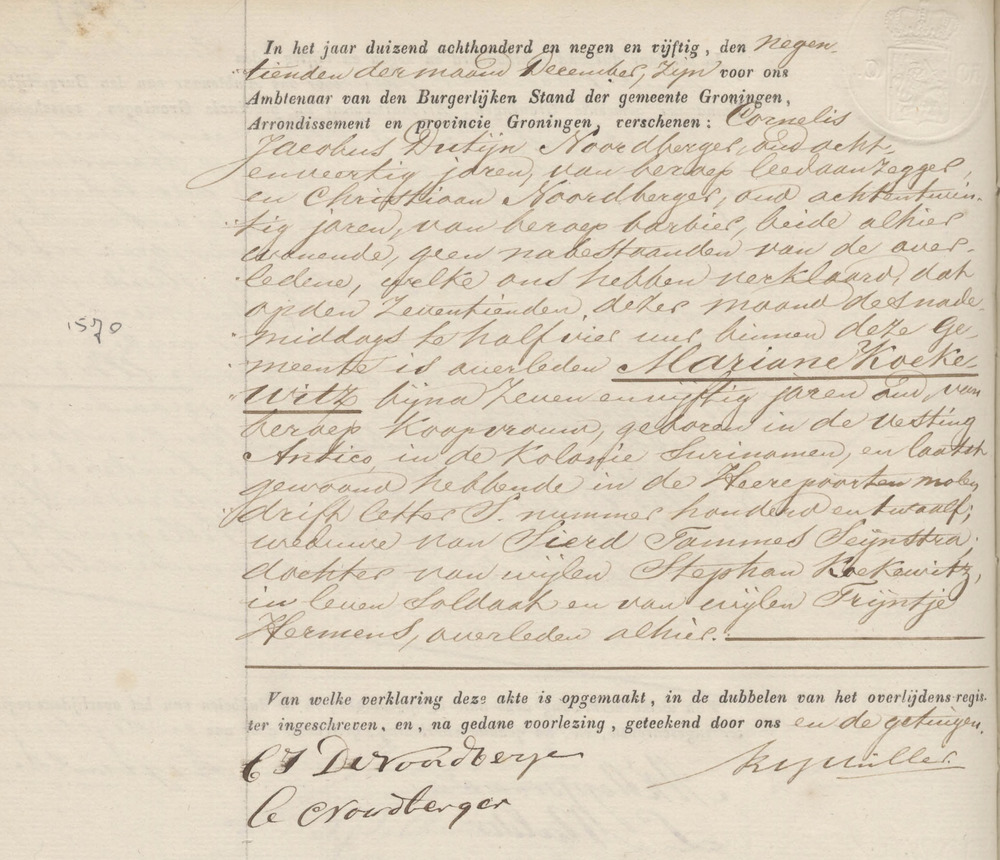 In het jaar duizend achthonderd en negen en vijftig, den negen-
tienden der maand December, zijn voor ons
Ambtenaar van den Burgerlijken Stand der gemeente Groningen,
Arrondissement en provincie Groningen, verschenen: Cornelis
Jacobus Dutijn Noordberger, oud acht-
enveertig jaren, van beroep leedaanzegger,
en Christiaan Noordberger, oud achtentwin-
tig jaren, van beroep barbier, beide alhier
wonende, geen nabestaanden van de over-
ledene, welke ons hebben verklaard, dat
op den zeventienden dezer maand des nade
middags te half vier uur, binnen deze Ge-
1570
meente is overleden Mariane Koeke-
witz bijna zeven envijftig jaren oud, van
beroep koopvrouw, geboren in de vesting
in de Kolonie Surinamen, en laatst
gewoond hebbende in de Heerepoorten molen
drift letter S. nummer honderd en twaalf,
weduwe van Sierd Tammes Seijnstra,
dochter van wijlen Stephan Koekewitz,
in leven soldaat en van wijlen Trijntje
Hermens, overleden alhier.
Van welke verklaring deze akte is opgemaakt, in de dubbelen van het overlijdens-regis-
ter ingeschreven, en, na gedane voorlezing, geteekend door ons en de getuigen.
C J D Noordberger
C Noordberger